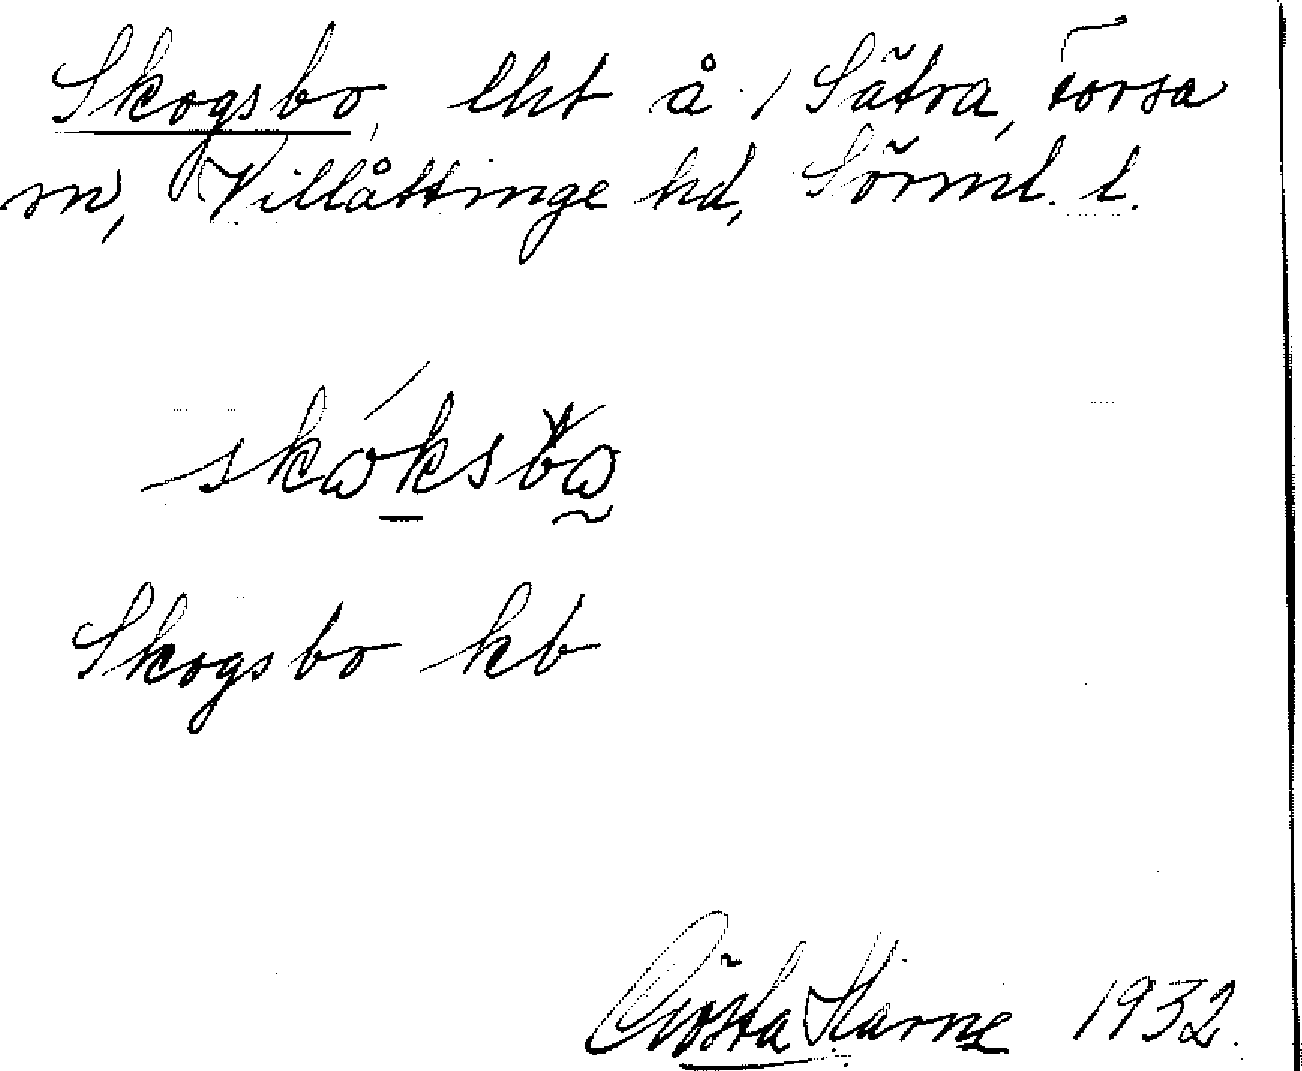 Skogsbo, lht å 1 Sätra, Torsa
sn, Villåttinge hd, Sörml. l.
skωksbω
Skogsbo kb
Gösta Harne 1932.